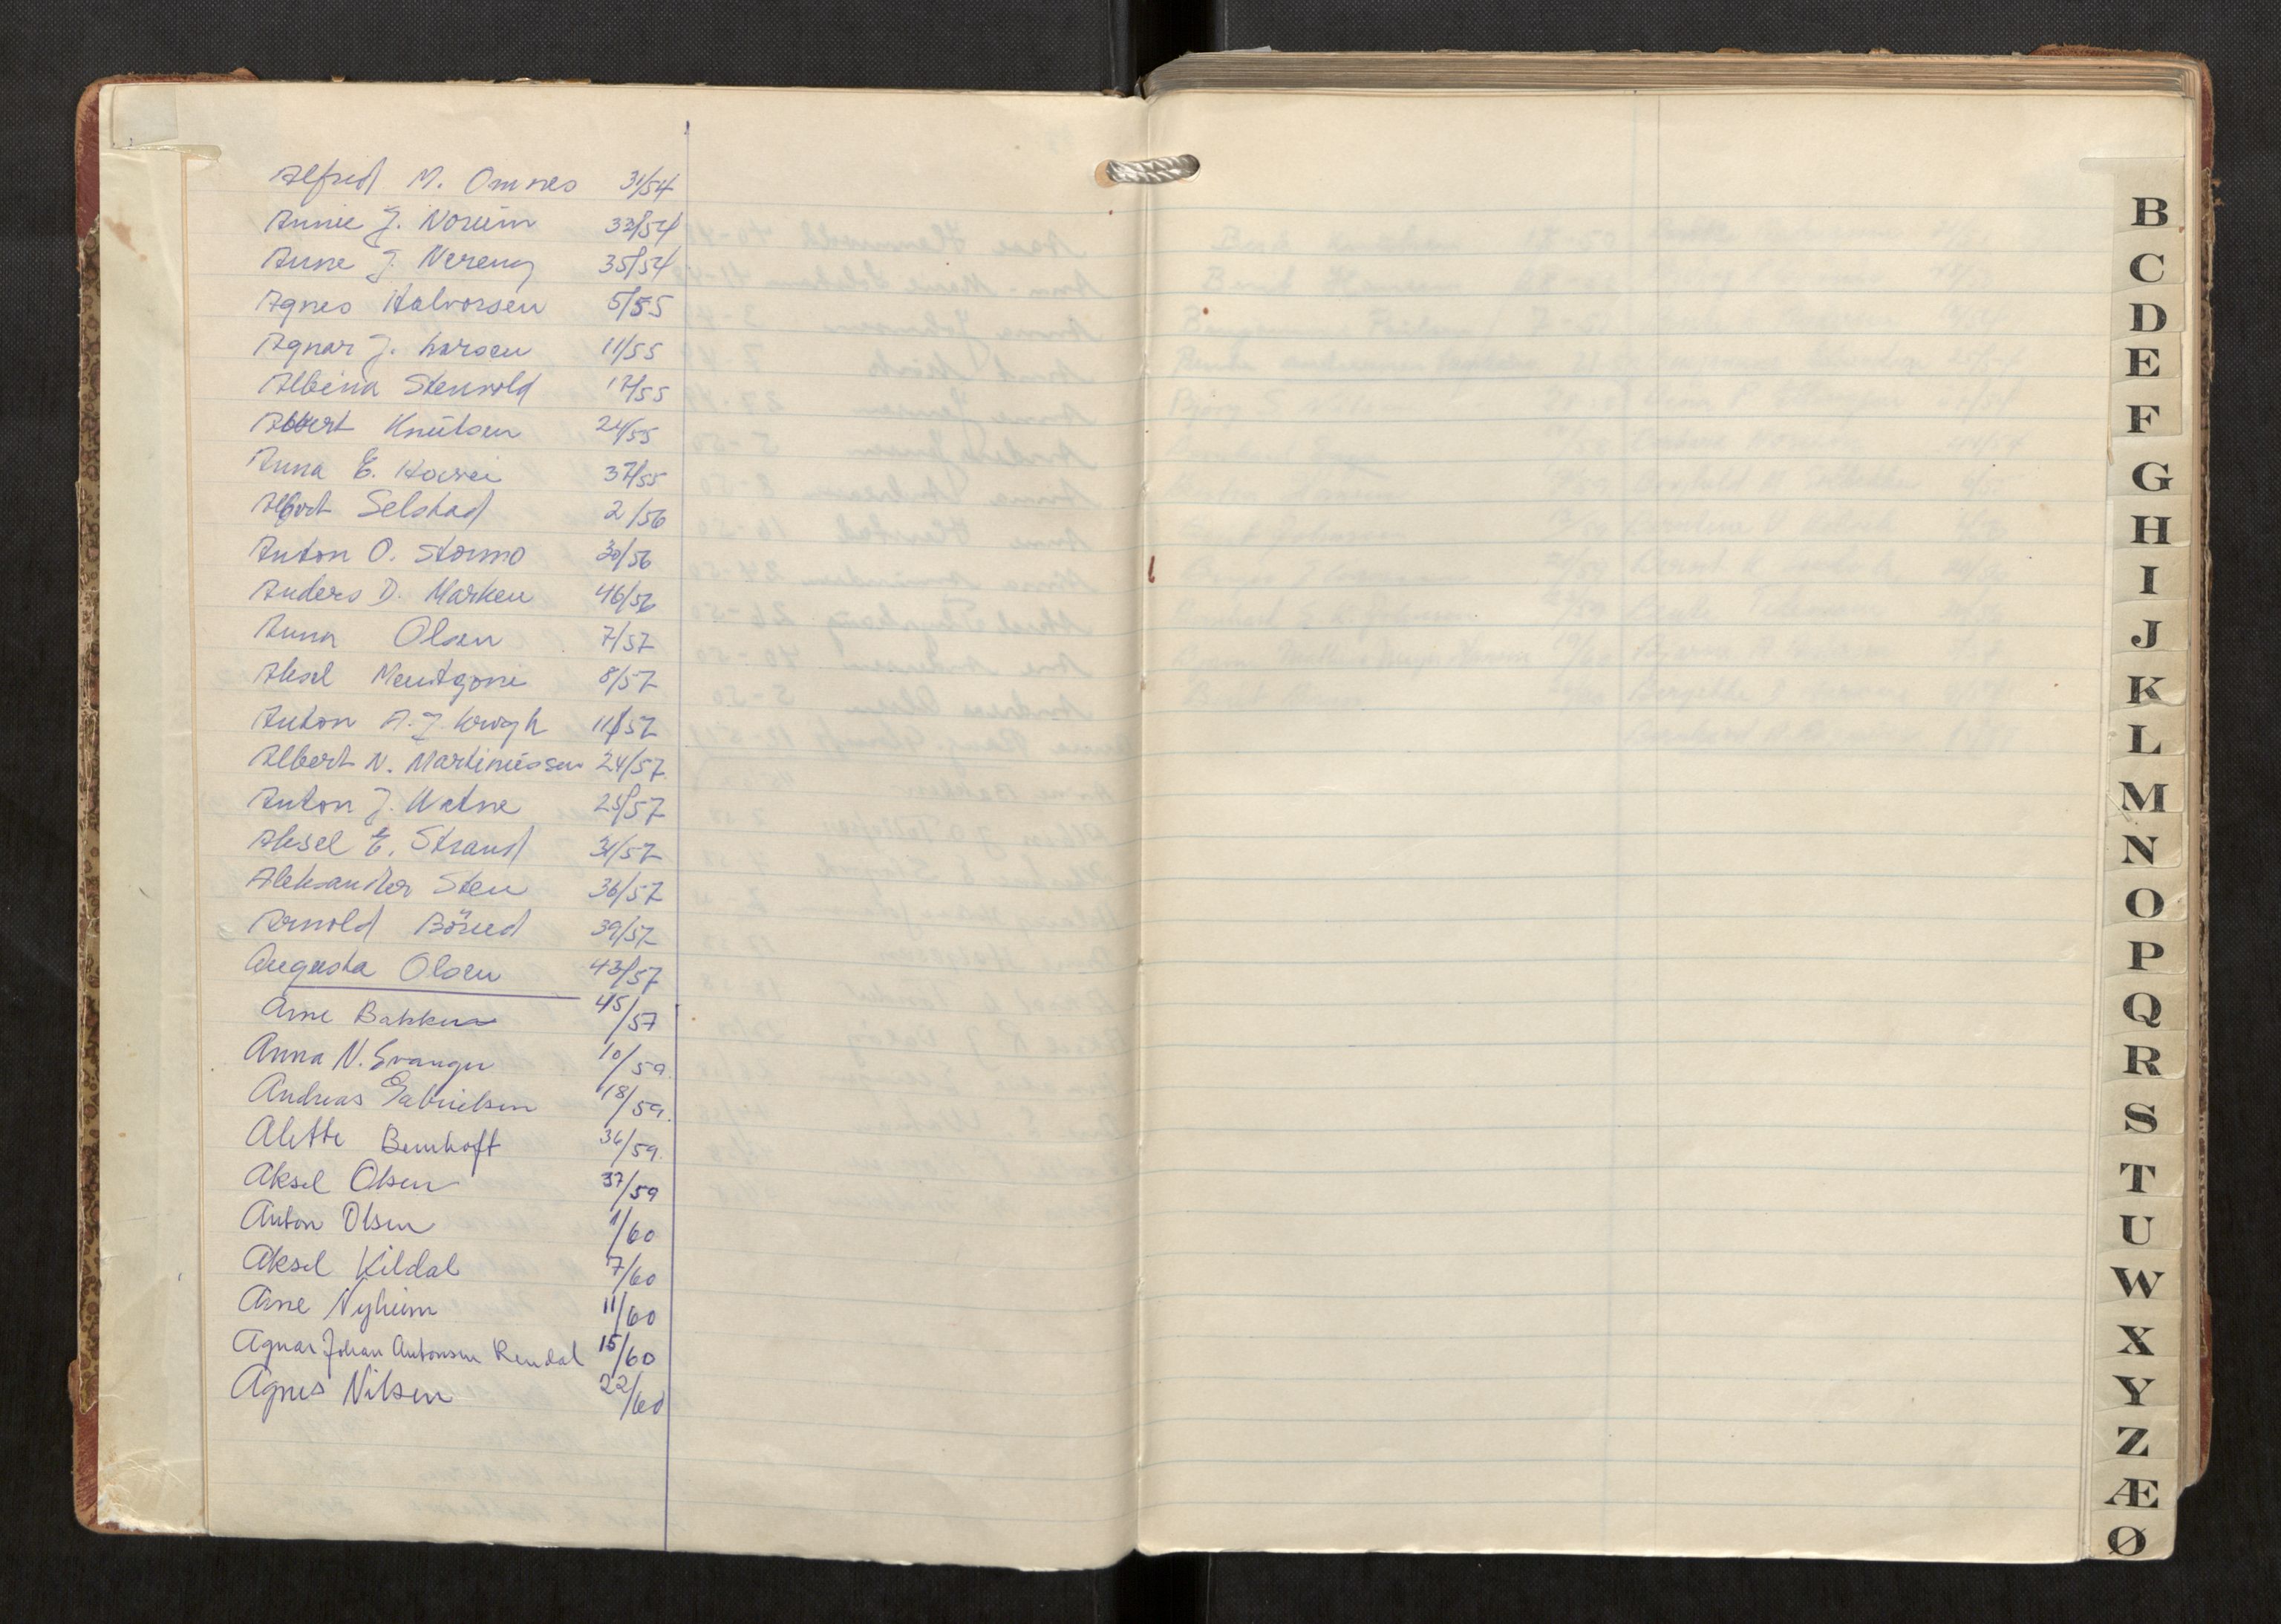 Alfred M. Omnes 31/54
Annie J. Noreim 33/54
Anne J. Vereng 35/54
Agnes Halvorsen 5/55
Agnar J. Larsen 11/55
Albeina Stenvold 17/55
Albert Knutsen 24/55
Anna E. 37/55
Albert Selstad 2/56
Anton O. Stormo 30/56
Anders D. Marken 46/56
Anna Olsen 7/57
Aksel Mentzoni 8/57
Anton A. J. Krogh 11/57
Albert N. Martinussen 24/57
Anton J. Watne 25/57
Aksel E. Strand 31/57
Aleksander Sten 36/57
Arnold 39/57
Augusta Olsen 43/57
Arne Bakken 45/57
Anna N. 10/59
Andreas Gabrielsen 18/59.
Alette Bernhoft 36/59.
Aksel Olsen 37/59
Anton Olsen 1/60
Aksel Kildal 7/60
Arne Nyheim 11/60
Agnar Johan Antonsen Rendal 15/60
Agnes Nilsen 22/60
B
C
D
E
F
G
H
I
J
K
L
M
N
O
P
Q
R
S
T
U
W
X
Y
Z
Æ
Ø